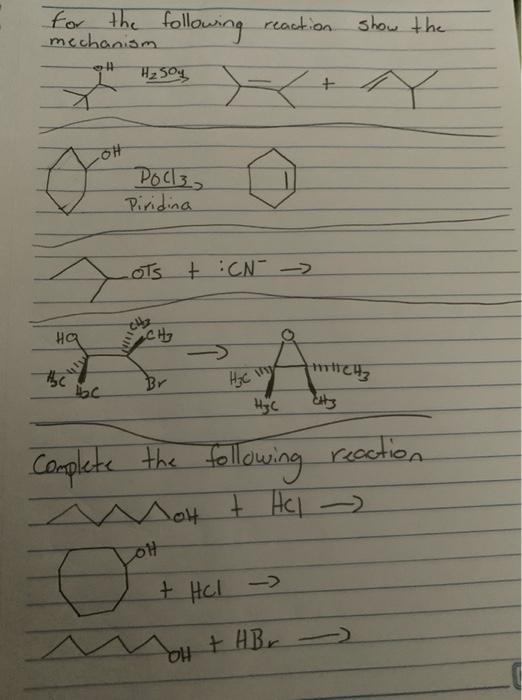 For the following reaction show the
mechanism
OH
H2SO4
+
OH
POCl3
Piridina
OTs + :CN-
HO
CH3
CH3
H3C
H3C
Br
O
H3C
CH3
H3C
CH3
Complete the following reaction
OH + HCl
OH
+ HCl
OH + HBr